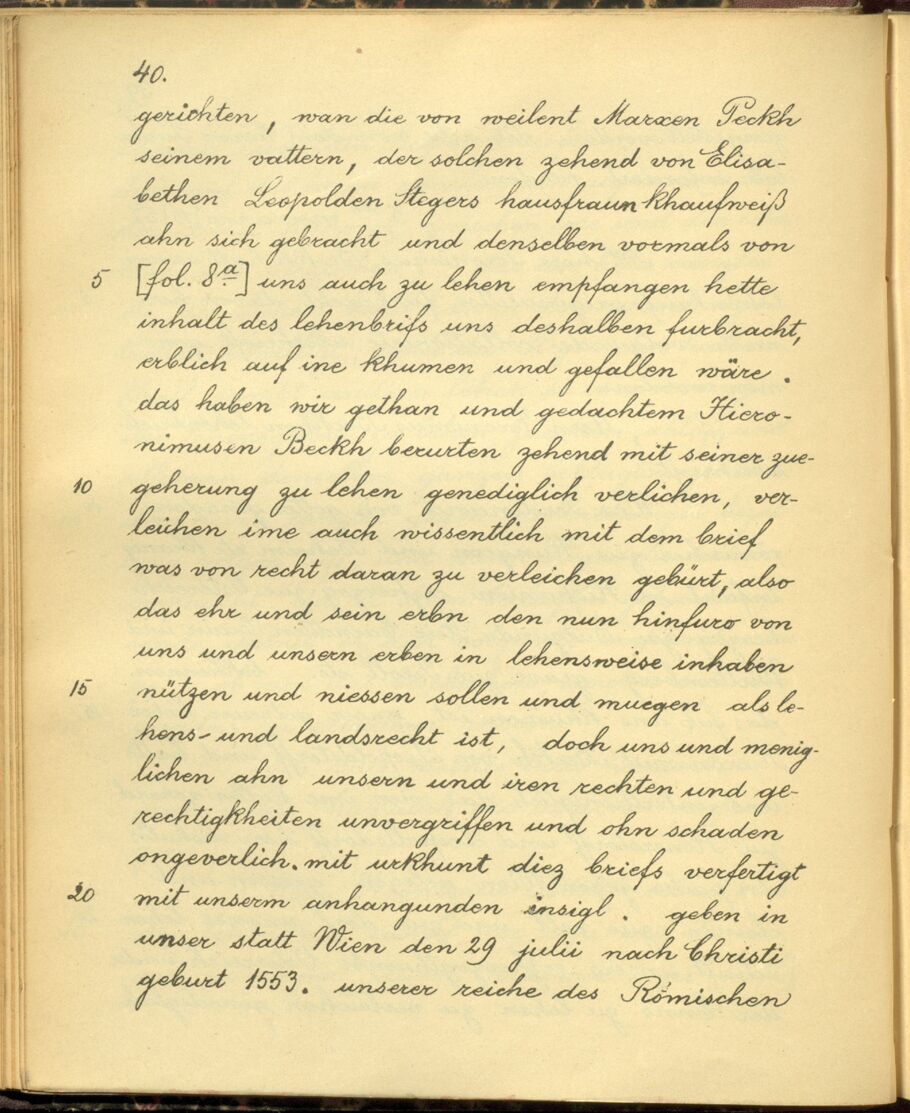 40.
gerichten, wan die von weilent Marxen Peckh
seinem vattern, der solchen zehend von Elisa-
bethen Leopolden Stegers hausfraun khaufweiß
ahn sich gebracht und denselben vormals von
5 [fol. 8a] uns auch zu lehen empfangen hette
inhalt des lehenbrifs uns deshalben furbracht,
erblich auf ine khumen und gefallen wäre.
das haben wir gethan und gedachtem Hiero-
nimusen Beckh berurten zehend mit seiner zue-
10 geherung zu lehen genediglich verlichen, ver-
leichen ime auch wissentlich mit dem brief
was von recht daran zu verleichen gebürt, also
das ehr und sein erbn den nun hinfuro von
uns und unsern erben in lehensweise inhaben
15 nützen und niessen sollen und muegen als le-
hens- und landsrecht ist, doch uns und menig-
lichen ahn unsern und iren rechten und ge-
rechtigkheiten unvergriffen und ohn schaden
ongeverlich. mit urkhunt diez briefs verfertigt
20 mit unserm anhangunden insigl. geben in
unser statt Wien den 29 julii nach Christi
geburt 1553. unserer reiche des Römischen